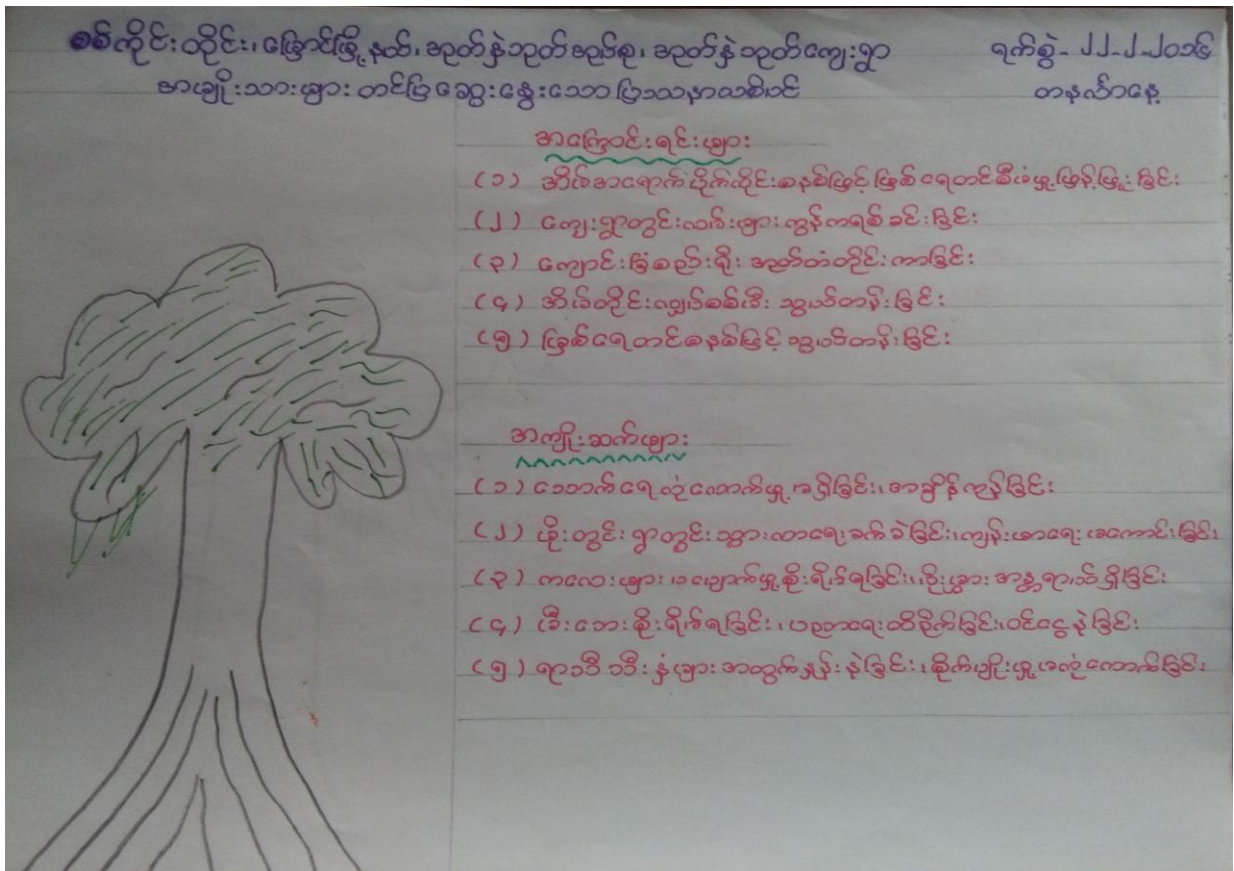 စစ်ကိုင်းတိုင်း၊ မြောင်မြို့နယ်၊ အုတ်နဲဘုတ်အုပ်စု၊ အုတ်နဲဘုတ်ကျေးရွာ
ရက်စွဲ - ၂၂-၂-၂၀၁၆
အမျိုးသားများ တင်ပြဆွေးနွေးသော ပြဿနာသစ်ပင်
တနင်္လာနေ့
အကြောင်းရင်းများ
(၁) အိမ်အရောက် ပိုက်လိုင်းစနစ်ဖြင့် မြစ်ရေတင်စီမံမှု့ဖြန့်ဖြူးခြင်း
(၂) ကျေးရွာတွင်းလမ်းများ ကွန်ကရစ်ခင်းခြင်း
(၃) ကျောင်းခြံစည်းရိုး အုတ်တံတိုင်းကာခြင်း
(၄) အိမ်တိုင်းလျှပ်စစ်မီး သွယ်တန်းခြင်း
(၅) မြစ်ရေတင်စနစ်ဖြင့် သွယ်တန်းခြင်း
အကျိုးဆက်များ
(၁) သောက်ရေလုံလောက်မှု့မရှိခြင်း၊ အချိန်ကုန်ခြင်း
(၂) မိုးတွင်း ရွာတွင်းသွားလာရေးခက်ခဲခြင်း၊ ကျန်းမာရေးမကောင်းခြင်း
(၃) ကလေးများ ပျောက်မှု့စိုးရိမ်ရခြင်း၊ အန္တရာယ်ရှိခြင်း
(၄) မီးဘေးစိုးရိမ်ရခြင်း၊ ပညာရေးထိခိုက်ခြင်း၊ ဝင်ငွေနဲခြင်း
(၅) ရာသီသီးနှံများ အထွက်နှုန်းနဲခြင်း၊ စိုက်ပျိုးမှု့မလုံလောက်ခြင်း